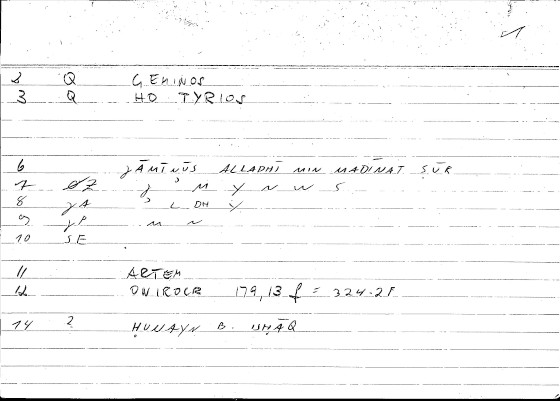 1
2 Q GEMINOS
3 Q HO TYRIOS
6 ǧĀMĪNŪS ALLADHĪ MIN MADĪNAT ṢŪR
7 ǧ ʾ M Y N W S
8 ʾ L DH Y
9 M N
10 SE
11 ARTEM
12 ONIROCR 179,13 f = 324.2F
14 2 ḤUNAYN B. ISḤĀQ